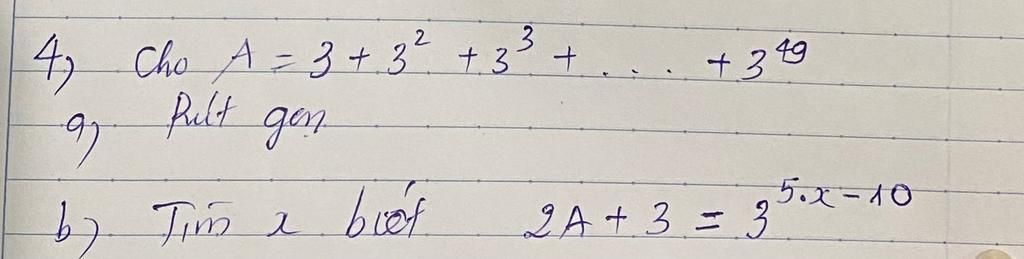 4) Cho A = 3 + 3² + 3³ + .... + 3⁴⁹
a) Rút gọn
b) Tìm x biết 2A + 3 = 3^{5.x-10}